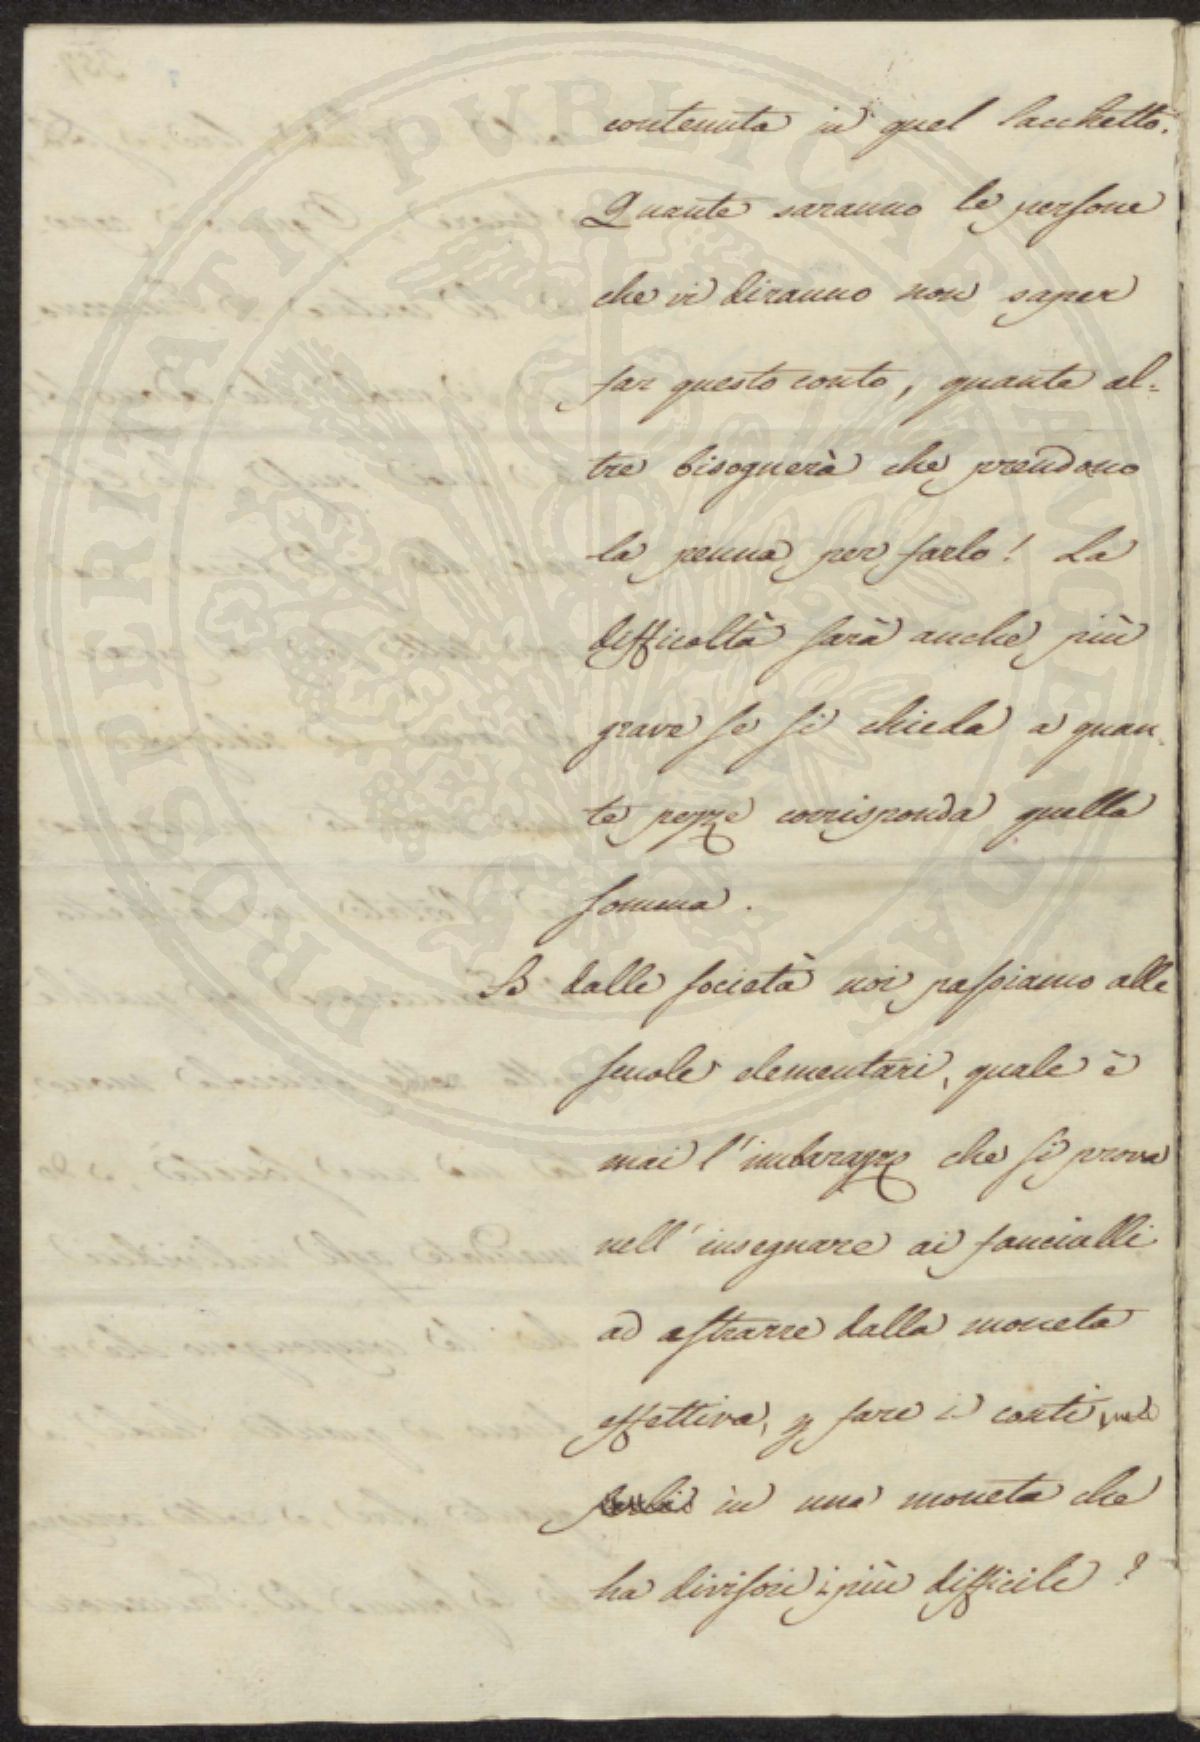 contenuta in quel sacchetto.
Quante saranno le persone
che vi diranno non saper
far questo conto, quante al=
tre bisognerà che prendono
la penna per farlo! La
difficoltà sarà anche più
grave se si chieda a quan
te pezze corrisponda quella
somma.
Se dalle società noi passiamo alle
scuole elementari, quale è
mai l'imbarazzo che si prova
nell'insegnare ai fanciulli
ad astrarre dalla moneta
effettiva, e fare i conti
in una moneta che
ha divisori i più difficile?
PROSPERITATI PVBLICAE AVGENDAE